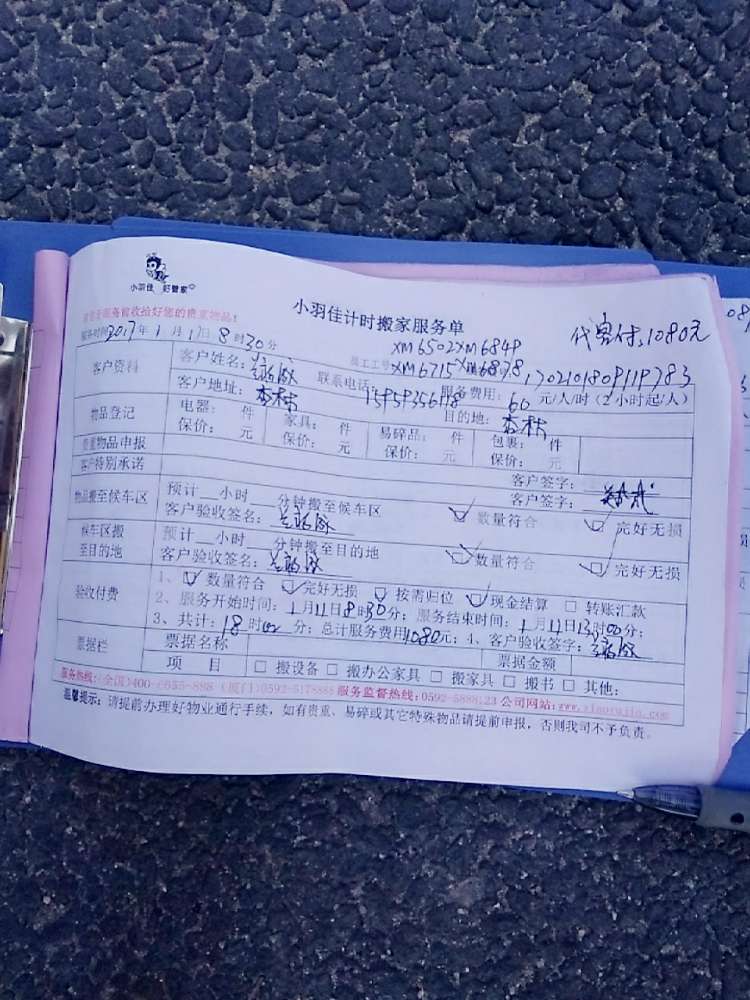 小羽佳 好管家
服务时间2017年1月17日8时30分
小羽佳计时搬家服务单
代客付:1080元
XM6502 XM6849
员工工号 XM6715 XM6878 1702101809119783
客户资料
客户姓名: 联系电话: 服务费用: 60 元/人/时 (2小时起/人)
客户地址: 杏林 目的地: 杏林
物品登记
电器: 件 家具: 件 易碎品: 件 包裹: 件
保价: 元 保价: 元 保价: 元 保价: 元
贵重物品申报 客户签字:
客户特别承诺 客户签字:
物品搬至候车区
预计__小时 分钟搬至候车区
客户验收签名: 数量符合 完好无损
候车区搬至目的地
预计__小时 分钟搬至目的地
客户验收签名: 数量符合 完好无损
验收付费
1、 数量符合 完好无损 按需归位 现金结算 □ 转账汇款
2、服务开始时间: 1月11日8时30分; 服务结束时间: 1月11日13时00分;
3、共计: 18时00分; 总计服务费用1080元; 4、客户验收签字:
票据栏
票据名称 票据金额
项 目 □ 搬设备 □ 搬办公家具 □ 搬家具 □ 搬书 □ 其他:
服务热线: (全国)400-6655-898 (厦门)0592-5178885 服务监督热线: 0592-5888123 公司网站: www.xiaoyujia.com
温馨提示: 请提前办理好物业通行手续, 如有贵重、易碎或其它特殊物品请提前申报, 否则我司不予负责。